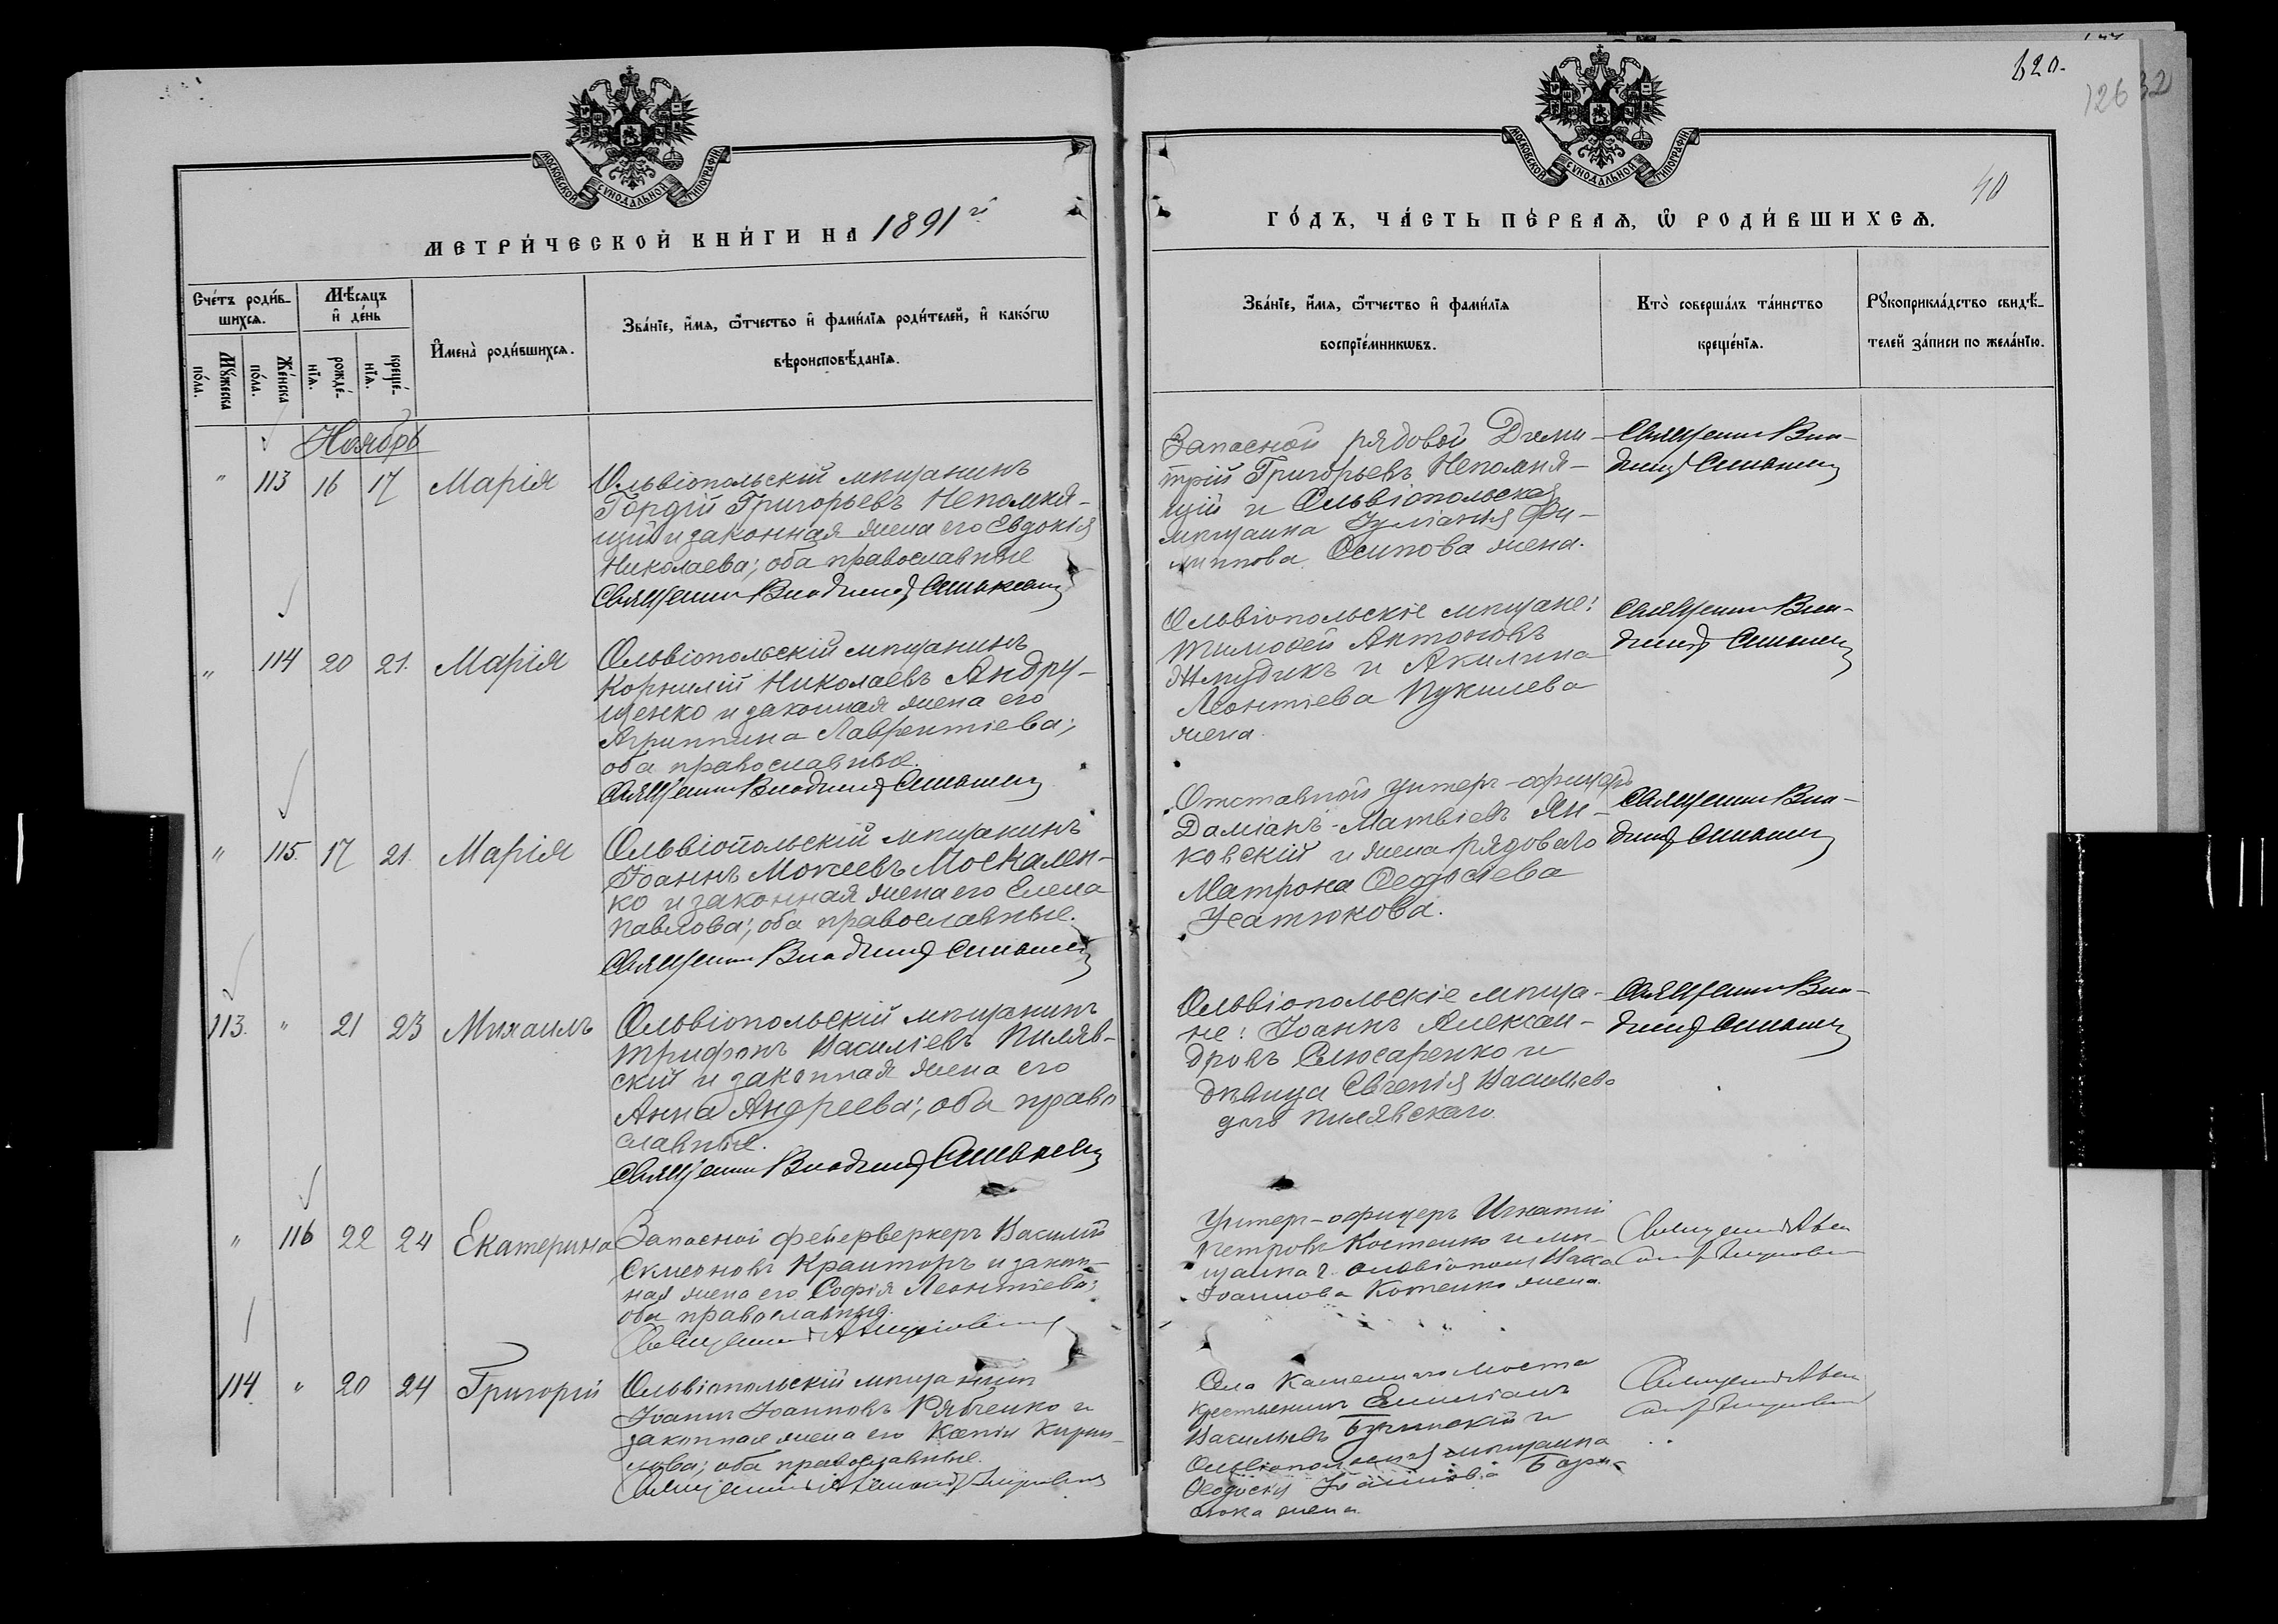 МОСКОВСКОЙ СѴНОДАЛЬНОЙ ТИПОГРАФІИ
МЕТРИ́ЧЕСКОЙ КНИ́ГИ НА 1891 й
Сче́тъ роди́в-
шихсѧ.
Мѣ́сѧцъ
и҆ де́нь
Мꙋ́жеска по́ла.
Же́нска по́ла.
рожде́-
нїѧ.
креще́-
нїѧ.
И҆мена̀ роди́вшихсѧ.
Зва́нїе, и҆́мѧ, ѻ҆́тчество и҆ фами́лїѧ роди́телей, и҆ како́гѡ
вѣроисповѣ́данїѧ.
Ноябрь
" 113 16 17 Марія
Ольвіопольскій мѣщанинъ
Гордій Григорьевъ Непомня-
щій и законная жена его Евдокія
Николаева; оба православные
Священникъ Владимиръ
" 114 20 21. Марія
Ольвіопольскій мѣщанинъ
Корнилій Николаевъ Андру-
щенко и законная жена его
Агриппина Лаврентіева;
оба православные.
Священникъ Владимиръ
" 115. 17 21. Марія
Ольвіопольскій мѣщанинъ
Іоаннъ Мокеевъ Москален-
ко и законная жена его Елена
Павлова; оба православные.
Священникъ Владимиръ
113. " 21 23 Михаилъ
Ольвіопольскій мѣщанинъ
Трифонъ Василіевъ Пиляв-
скій и законная жена его
Анна Андреева; оба право-
славные.
Священникъ Владимиръ
" 116 22 24 Екатерина
Запасной фейерверкеръ Василій
Симеоновъ и закон-
ная жена его Софія Леонтіева;
оба православные.
Священникъ
114. " 20 24 Григорій
Ольвіопольскій мѣщанинъ
Іоаннъ Іоанновъ Рябченко и
законная жена его Ксенія Кирил-
лова; оба православные.
Священникъ
МОСКОВСКОЙ СѴНОДАЛЬНОЙ ТИПОГРАФІИ
620.
126
32
40
ГО́ДЪ, ЧА́СТЬ ПЕ́РВАѦ, Ѡ҆ РОДИ́ВШИХСѦ.
Зва́нїе, и҆́мѧ, ѻ҆́тчество и҆ фами́лїѧ
воспрїе́мникѡвъ.
Кто̀ соверша́лъ та́инство
креще́нїѧ.
Рꙋкоприкла́дство свидѣ́-
телей за́писи по жела́нїю.
Запасной рядовой Дими-
трій Григорьевъ Непомня-
щій и Ольвіопольская
мѣщанка Іуліанія Фи-
липпова Осипова жена.
Священникъ Вла-
димиръ
Ольвіопольскіе мѣщане:
Тимофей Антоновъ
Жмудикъ и Акилина
Леонтіева Пукилева
жена.
Священникъ Вла-
димиръ
Отставной унтеръ-офицеръ
Даміанъ Матвіевъ Ян-
ковскій и жена рядового
Матрона Феодосіева
Усатюкова.
Священникъ Вла-
димиръ
Ольвіопольскіе мѣща-
не: Іоаннъ Алексан-
дровъ Слюсаренко и
дѣвица Евгенія Васильева
дочь Пилявскаго.
Священникъ Вла-
димиръ
Унтеръ-офицеръ Игнатій
Петровъ Костенко и мѣ-
щанка г.
Іоаннова Котенко жена.
Священникъ
Села Каменнаго Моста
крестьянинъ Емиліанъ
Васильевъ и
Ольвіопольская мѣщанка
Феодосія
жена
Священникъ